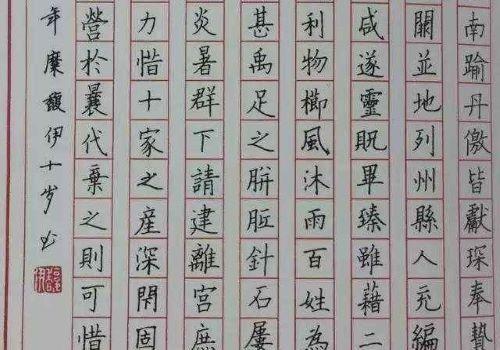 南踰丹儌皆獻琛奉贄
闕並地列州縣人充編
咸遂靈貺畢臻雖藉二
利物櫛風沐雨百姓為
甚禹足之胼胝針石屢
炎暑群下請建離宮庶
力惜十家之產深閇固
營於曩代棄之則可惜
年糜馥伊十岁书